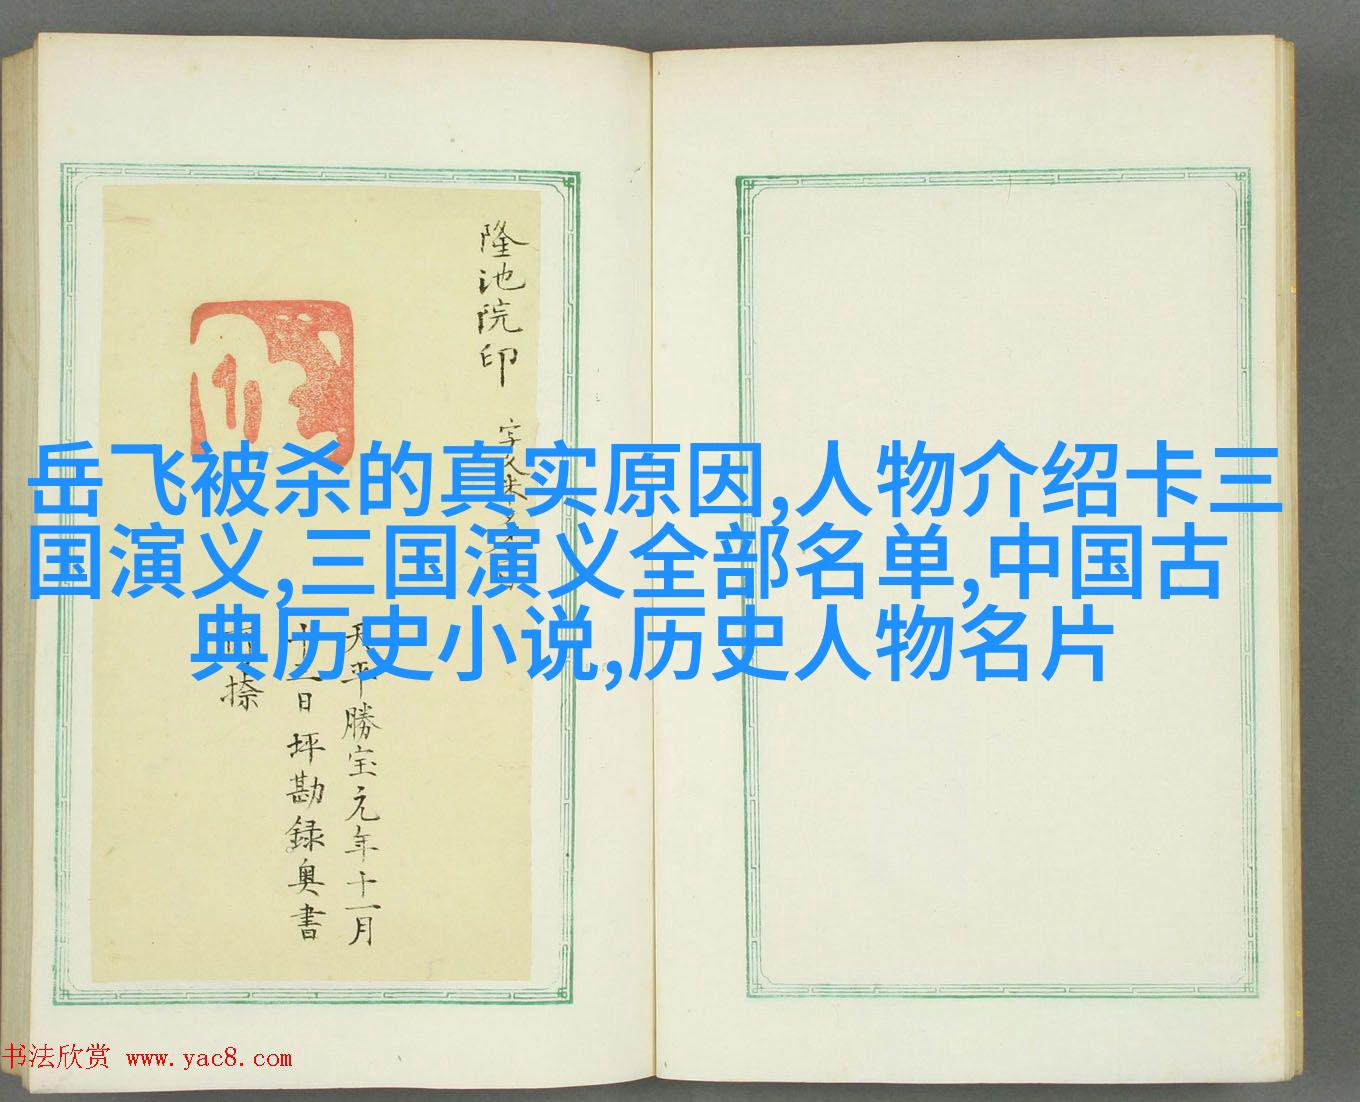 岳飞被杀的真实原因,人物介绍卡三
国演义,三国演义全部名单,中国古
典历史小说,历史人物名片
隆池院印
天平勝宝元年十一月
日坪勘録奥書
捺
书法欣赏 www.yac8.com